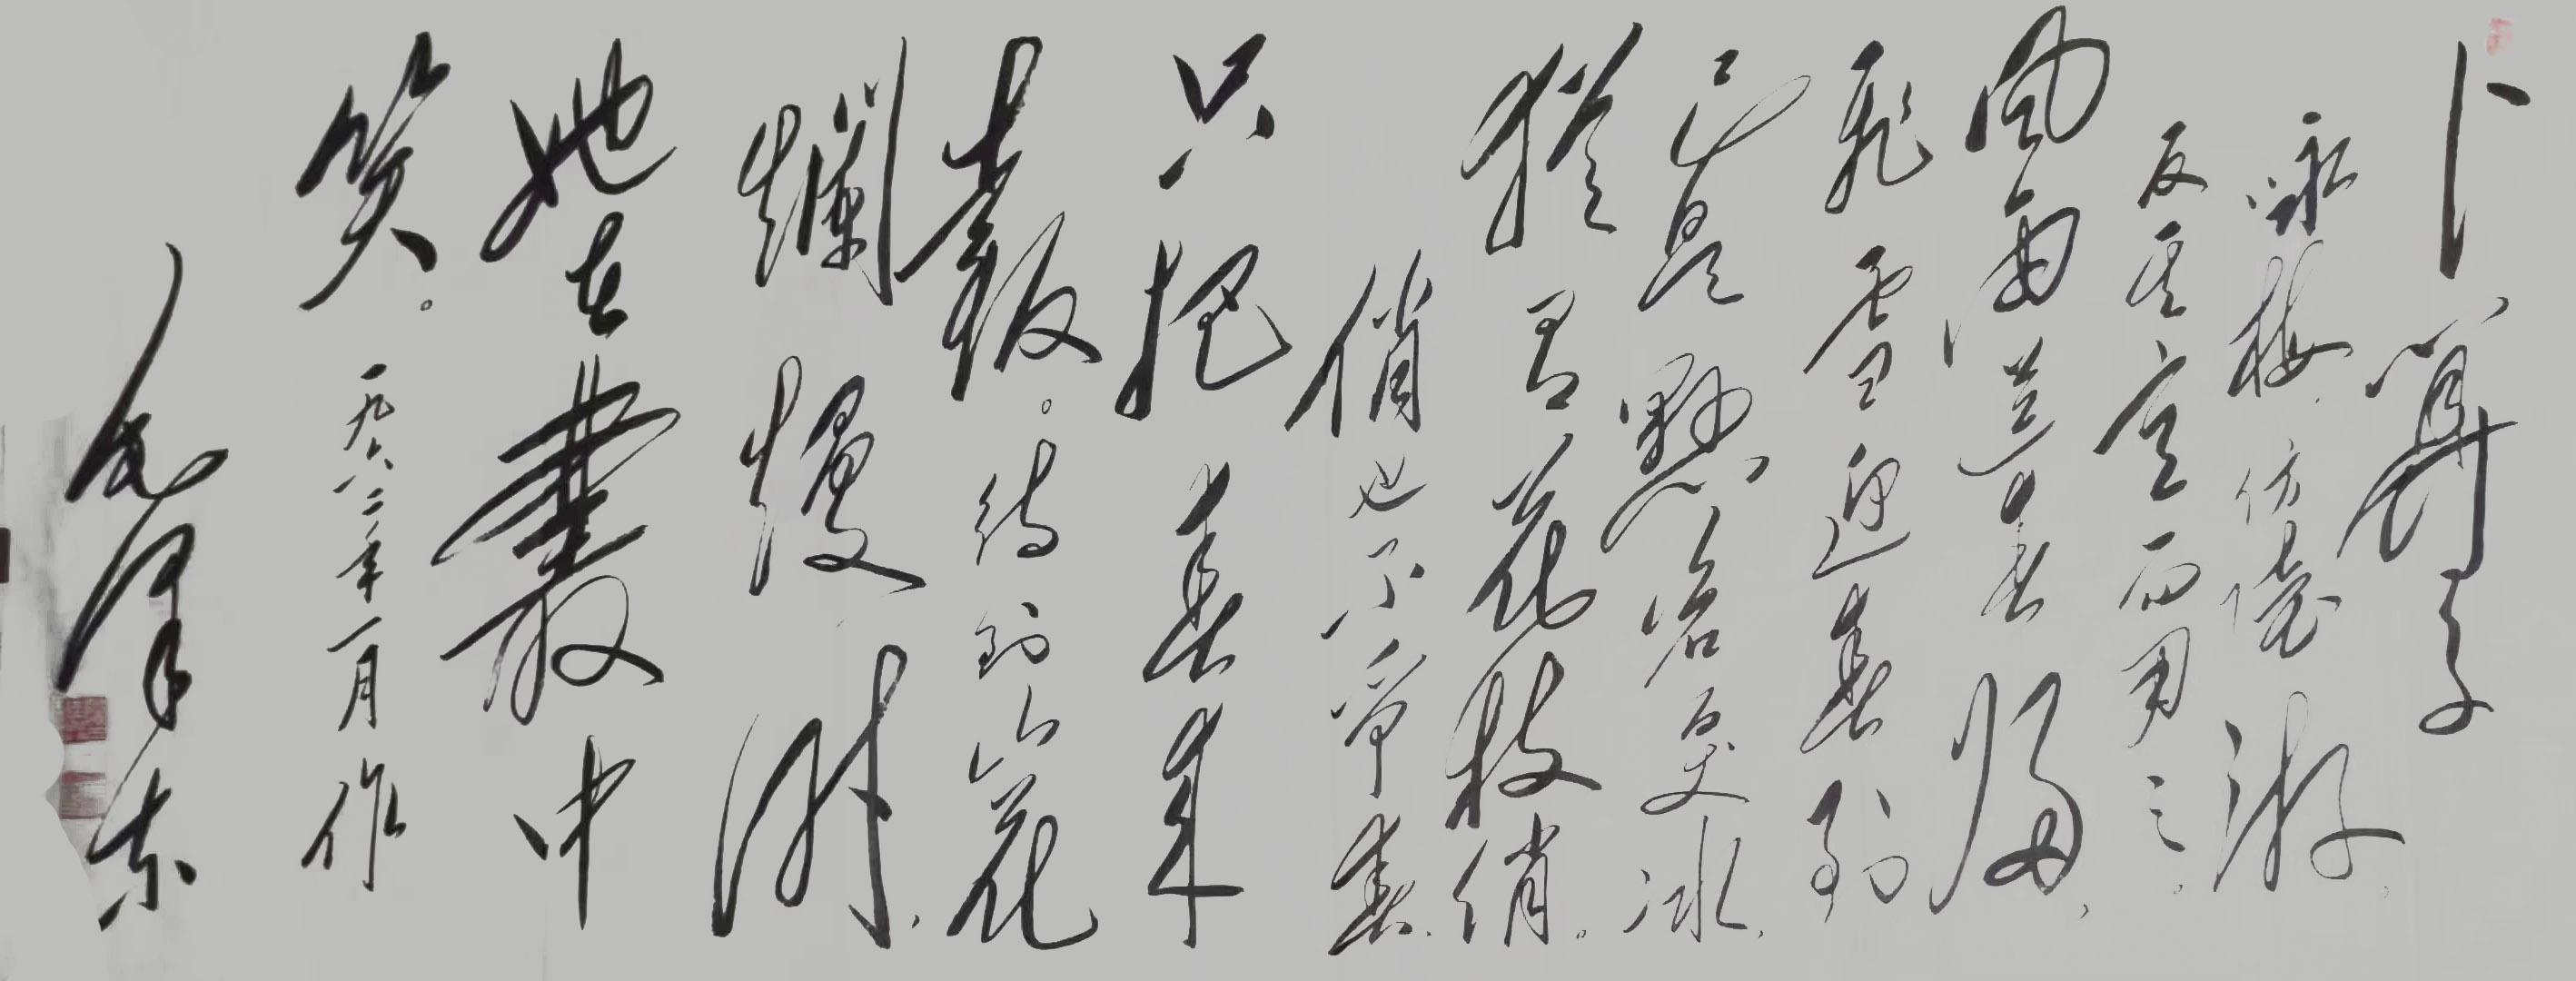 卜算子
咏梅.仿陸游.
反其意而用之.。
风雨送春归,
飛雪迎春到
已是懸岩百丈冰,
猶有花枝俏。
俏也不争春,
只把春来
報。待到山花
爛熳时,
她在叢中
笑。
一九六二年一月作
毛泽东